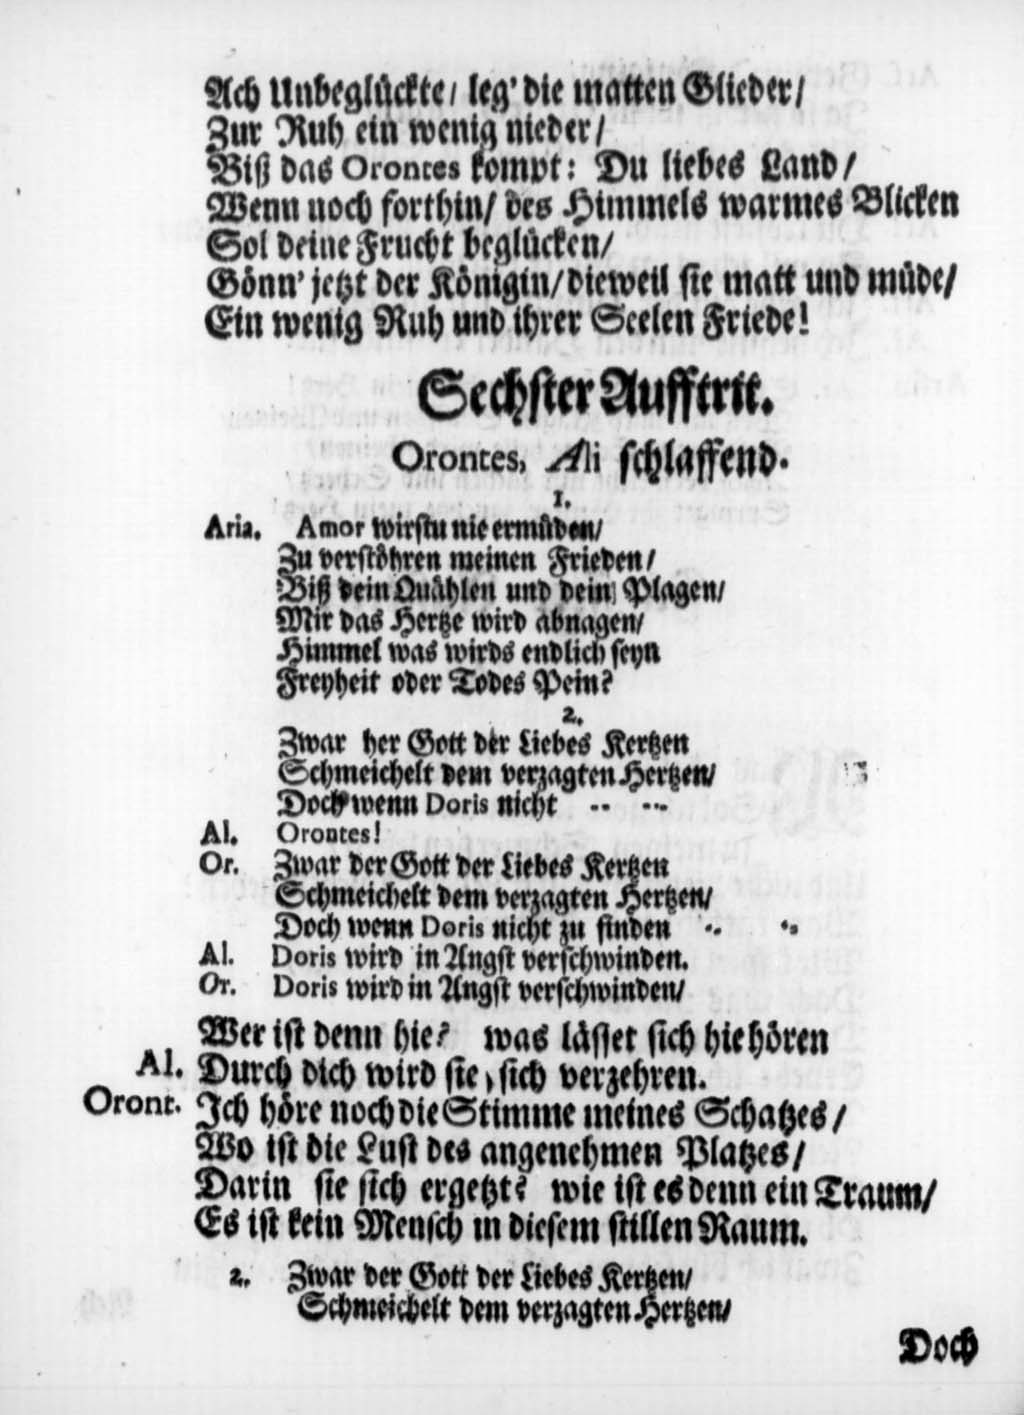 Ach Unbeglückte/ leg' die matten Glieder/
Zur Ruh ein wenig nieder/
Biß das Orontes kompt: Du liebes Land/
Wenn noch forthin/ des Himmels warmes Blicken
Sol deine Frucht beglücken/
Gönn' jetzt der Königin/ dieweil sie matt und müde/
Ein wenig Ruh und ihrer Seelen Friede!
Sechster Aufftrit.
Orontes, Ali schlaffend.
1.
Aria. Amor wirstu nie ermüden/
Zu verstöhren meinen Frieden/
Biß dein Quählen und dein Plagen/
Mir das Hertze wird abnagen/
Himmel was wirds endlich seyn
Freyheit oder Todes Pein?
2.
Zwar her Gott der Liebes Kertzen
Schmeichelt dem verzagten Hertzen/
Doch wenn Doris nicht -- --
Al. Orontes!
Or. Zwar der Gott der Liebes Kertzen
Schmeichelt dem verzagten Hertzen/
Doch wenn Doris nicht zu finden -- --
Al. Doris wird in Angst verschwinden.
Or. Doris wird in Angst verschwinden/
Wer ist denn hie? was lässet sich hie hören
Al. Durch dich wird sie, sich verzehren.
Oront. Ich höre noch die Stimme meines Schatzes/
Wo ist die Lust des angenehmen Platzes/
Darin sie sich ergetzt? wie ist es denn ein Traum/
Es ist kein Mensch in diesem stillen Raum.
2. Zwar der Gott der Liebes Kertzen/
Schmeichelt dem verzagten Hertzen/
Doch